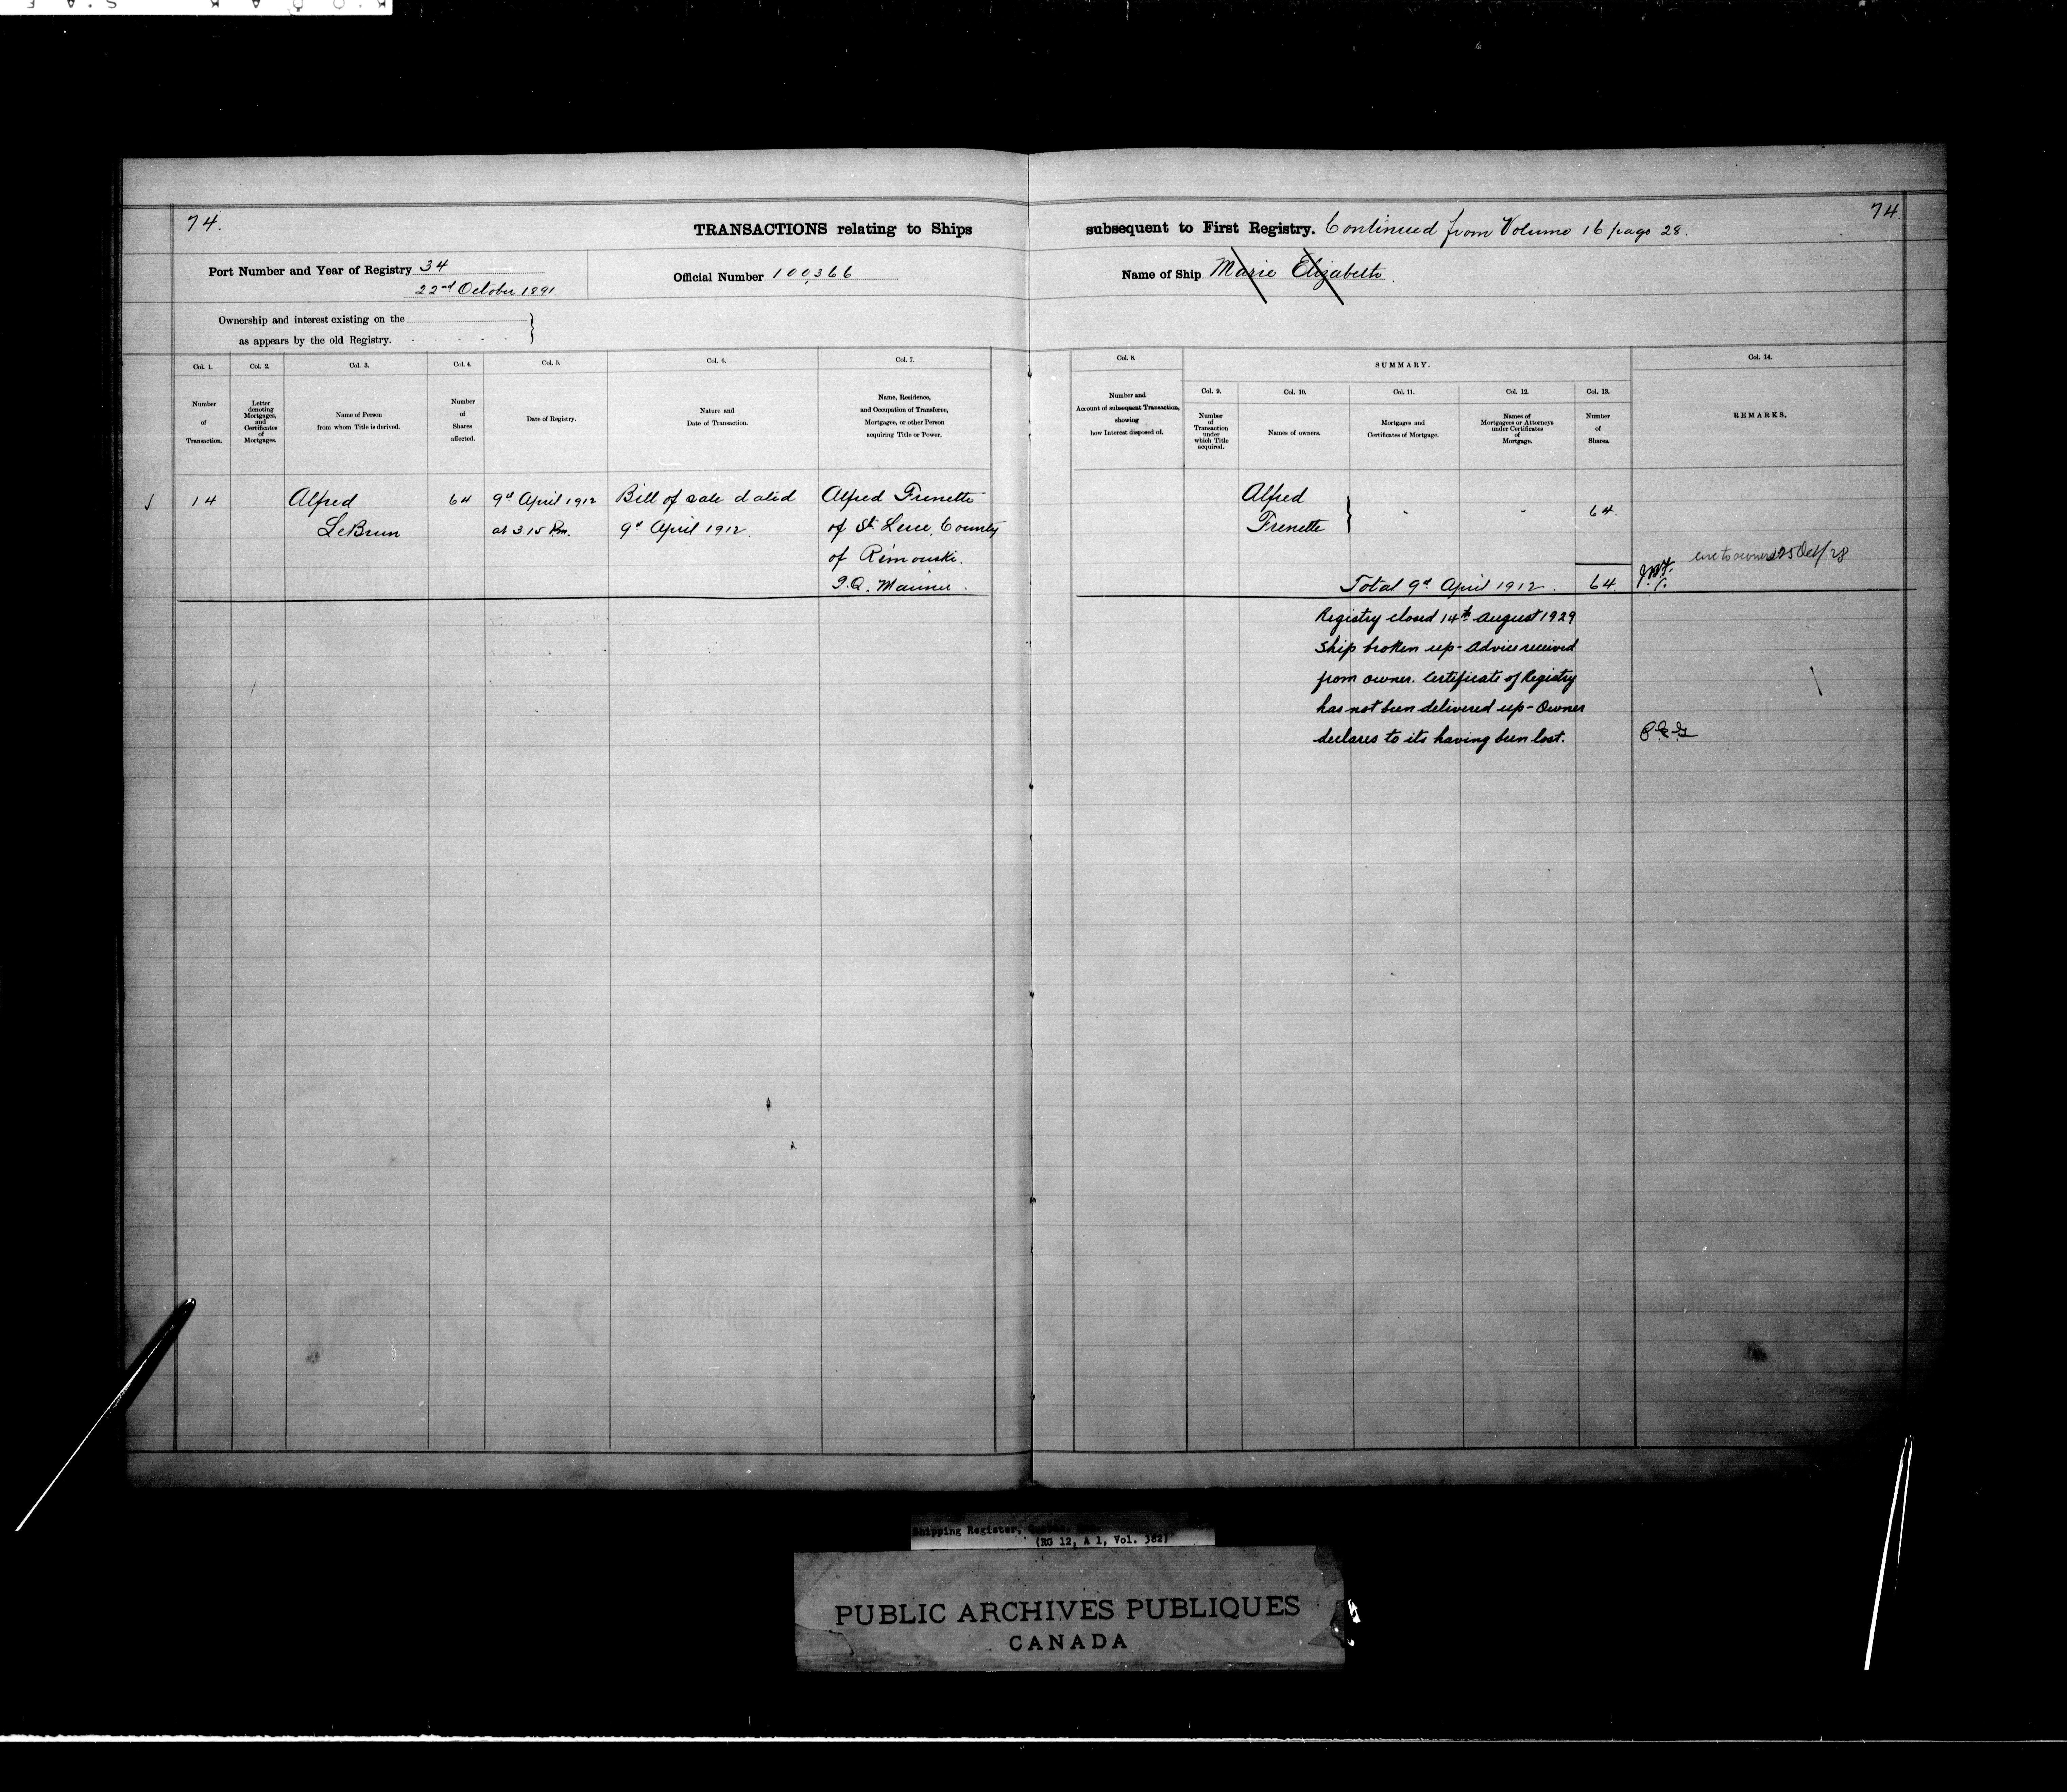 74.
TRANSACTIONS relating to Ships subsequent to First Registry. Continued from Volume 16 page 28.
74
Port Number and Year of Registry 34
22nd October 1891.
Official Number 100,366
Name of Ship Marie Elizabeth.
Ownership and interest existing on the
as appears by the old Registry.
Col. 1.
Number
of
Transaction.
Col. 2.
Letter
denoting
Mortgages,
and
Certificates
of
Mortgages.
Col. 3.
Name of Person
from whom Title is derived.
Col. 4.
Number
of
Shares
affected.
Col. 5.
Date of Registry.
Col. 6.
Nature and
Date of Transaction.
Col. 7.
Name, Residence,
and Occupation of Transferee,
Mortgagee, or other Person
acquiring Title or Power.
Col. 8.
Number and
Account of subsequent Transaction,
showing
how Interest disposed of.
SUMMARY.
Col. 9.
Number
of
Transaction
under
which Title
acquired.
Col. 10.
Names of owners.
Col. 11.
Mortgages and
Certificates of Mortgage.
Col. 12.
Names of
Mortgagees or Attorneys
under Certificates
of
Mortgage.
Col. 13.
Number
of
Shares.
Col. 14.
REMARKS.
14
Alfred
LeBrun
64
9d April 1912
at 3.15 P.m.
Bill of sale dated
9d April 1912.
Alfred Frenette
of St. Luce, County
of Rimouski.
P.Q. Mariner.
Alfred
Frenette
64.
to owner 25 Oct/28
Total 9d April 1912. 64.
Registry closed 14th August 1929
Ship broken up - Advice received
from owner. Certificate of Registry
has not been delivered up - Owner
declares to its having been lost.
Shipping Register,
(RG 12, A 1, Vol. 382)
PUBLIC ARCHIVES PUBLIQUES
CANADA